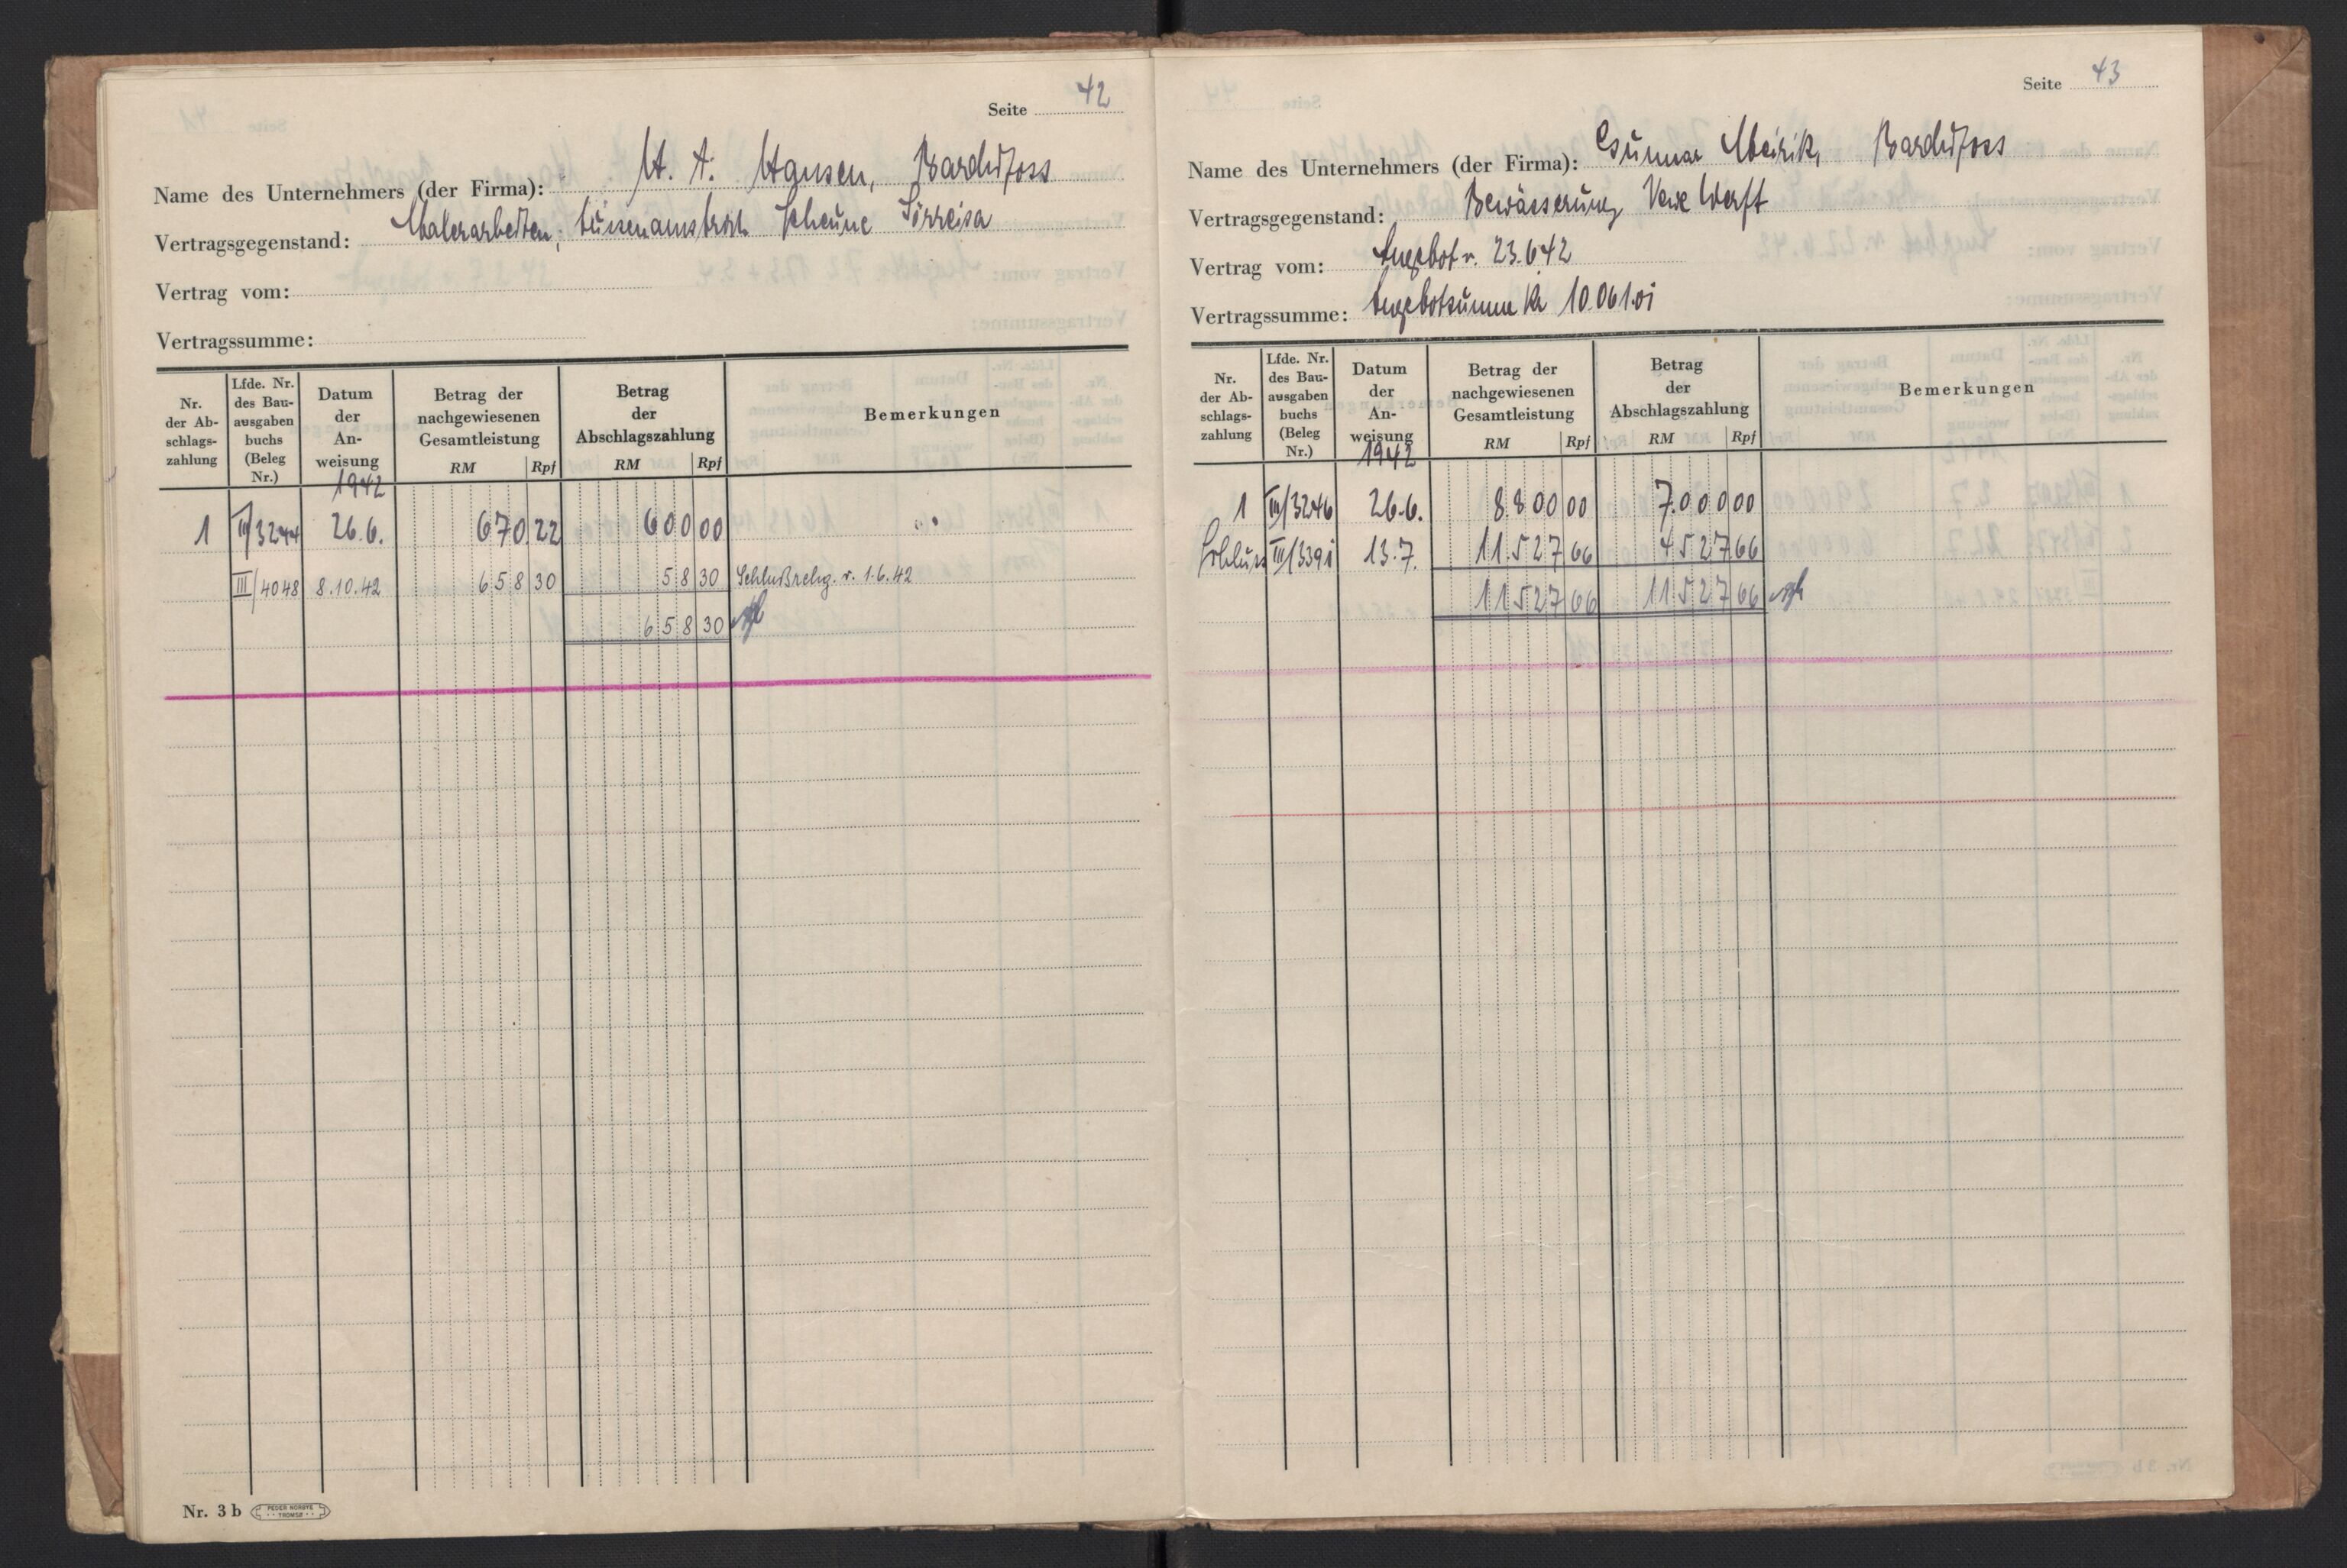 Seite 42
Name des Unternehmers (der Firma): H. A. Hansen, Bardufoss
Vertragsgegenstand: Malerarbeiten, Aussenanstrich Scheune Sörreisa
Vertrag vom:
Vertragssumme:
Nr. der Abschlagszahlung
Lfde. Nr. des Bauausgabenbuchs (Beleg Nr.)
Datum der Anweisung
Betrag der nachgewiesenen Gesamtleistung
Betrag der Abschlagszahlung
Bemerkungen
RM Rpf RM Rpf
1942
1 III/3244 26.6. 670 22 600 00
III/4048 8.10.42 658 30 58 30 Schlußrchg. v. 1.6.42
658 30
Nr. 3 b PEDER NORBYE TROMSØ
Seite 43
Name des Unternehmers (der Firma): Gunnar Meirik, Bardufoss
Vertragsgegenstand: Bewässerung Werft
Vertrag vom: Angebot v. 23.6.42
Vertragssumme: Angebotsumme Kr 10.061.01
Nr. der Abschlagszahlung
Lfde. Nr. des Bauausgabenbuchs (Beleg Nr.)
Datum der Anweisung
Betrag der nachgewiesenen Gesamtleistung
Betrag der Abschlagszahlung
Bemerkungen
RM Rpf RM Rpf
1942
1 III/3246 26.6. 8.800 00 7.000 00
Schluss III/3391 13.7. 11.527 66 4527 66
11527 66 11527 66